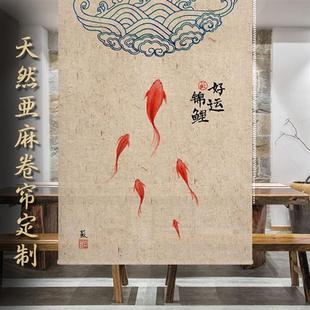 天然亚麻卷帘定制
好运
锦鲤